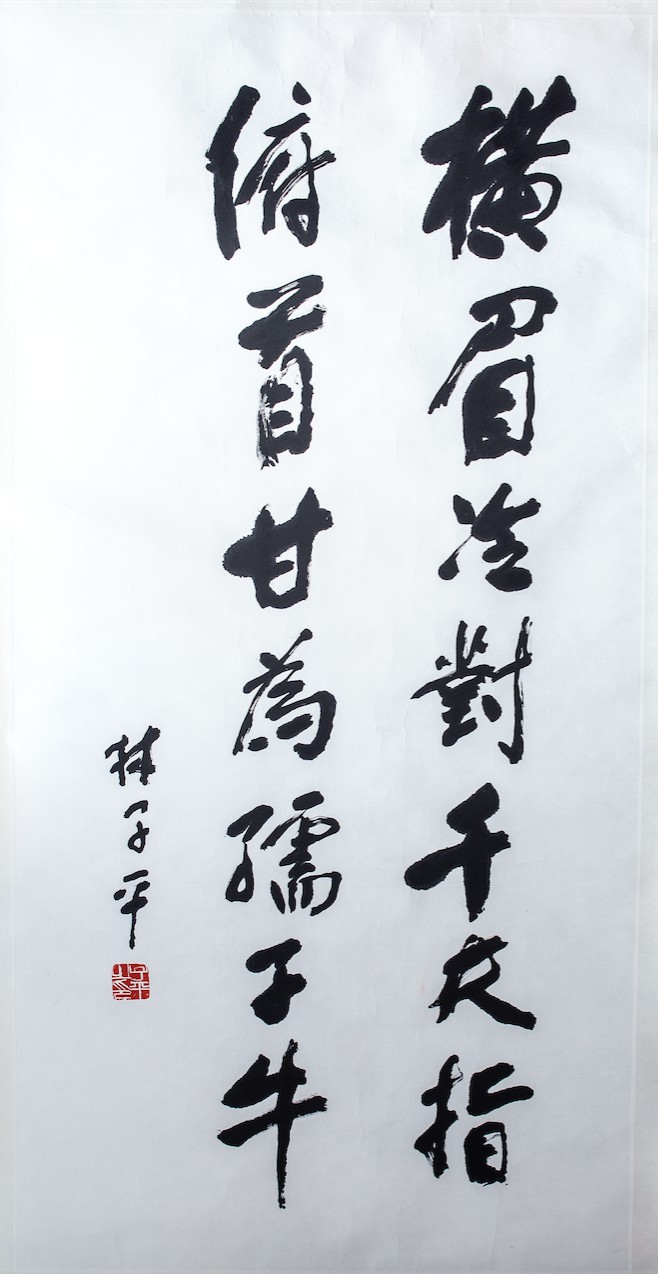 橫眉冷對千夫指
俯首甘為孺子牛
林子平
子平之印